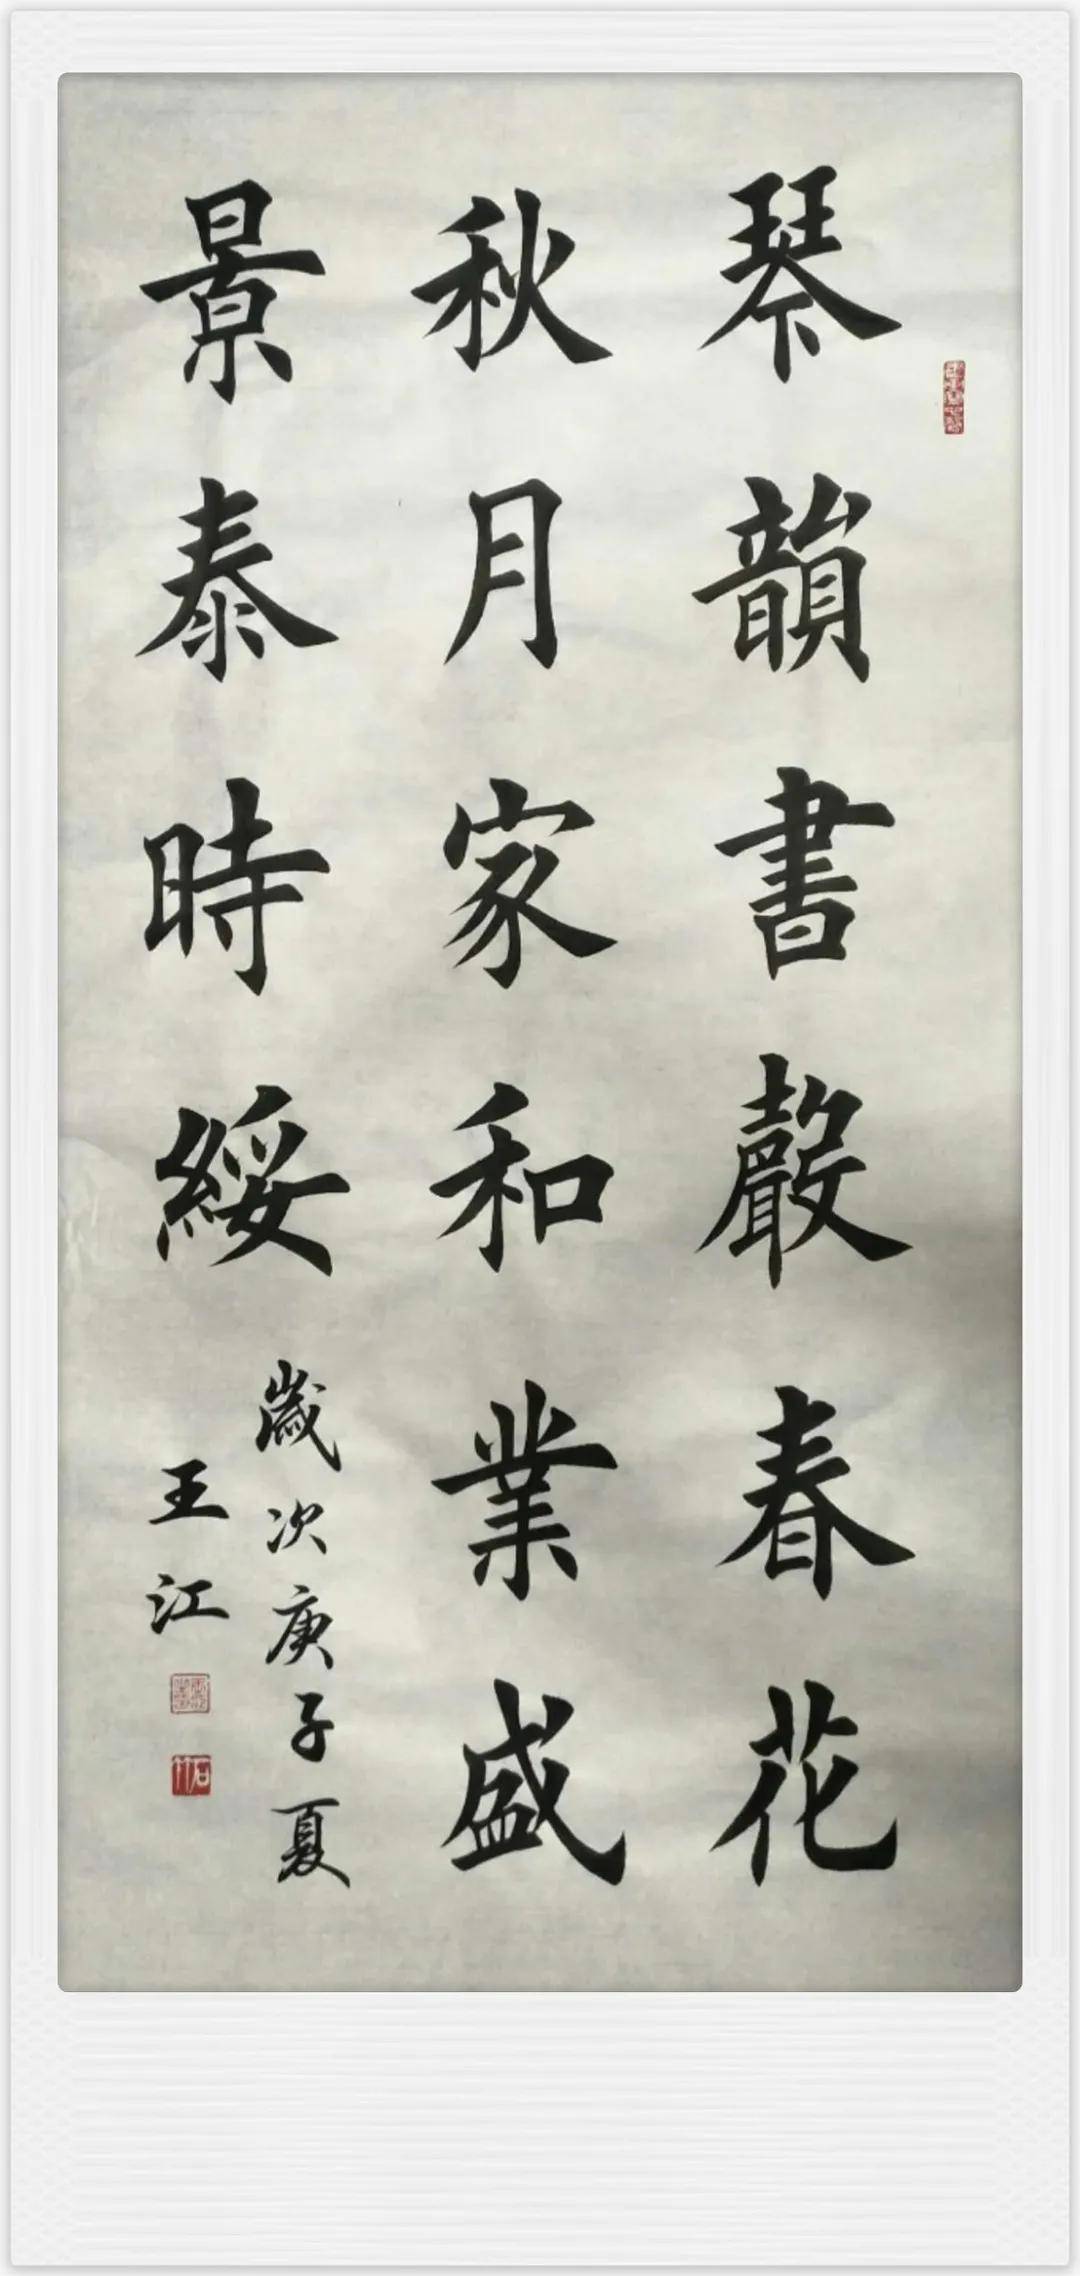 琴韻書聲春花
秋月家和業盛
景泰時綏
歲次庚子夏
王江